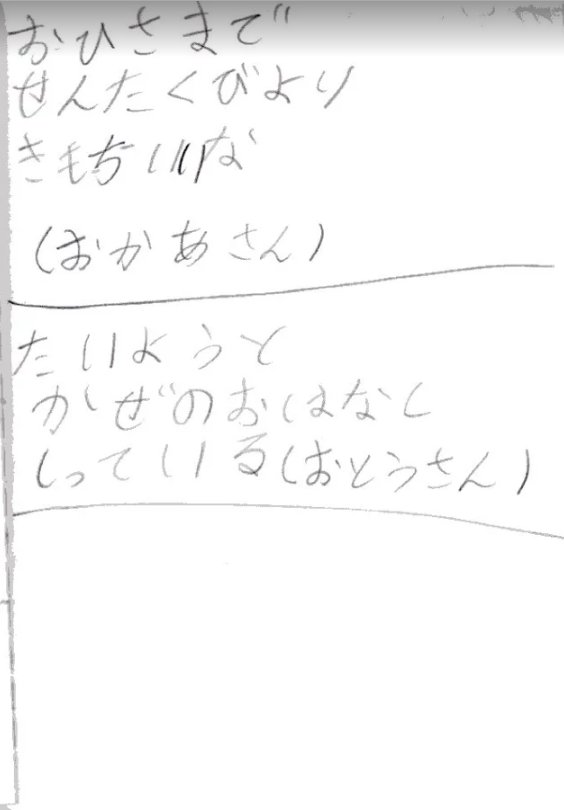 おひさまで
せんたくびより
きもちいいな
(おかあさん)
たいようと
かぜのおはなし
しっている(おとうさん)